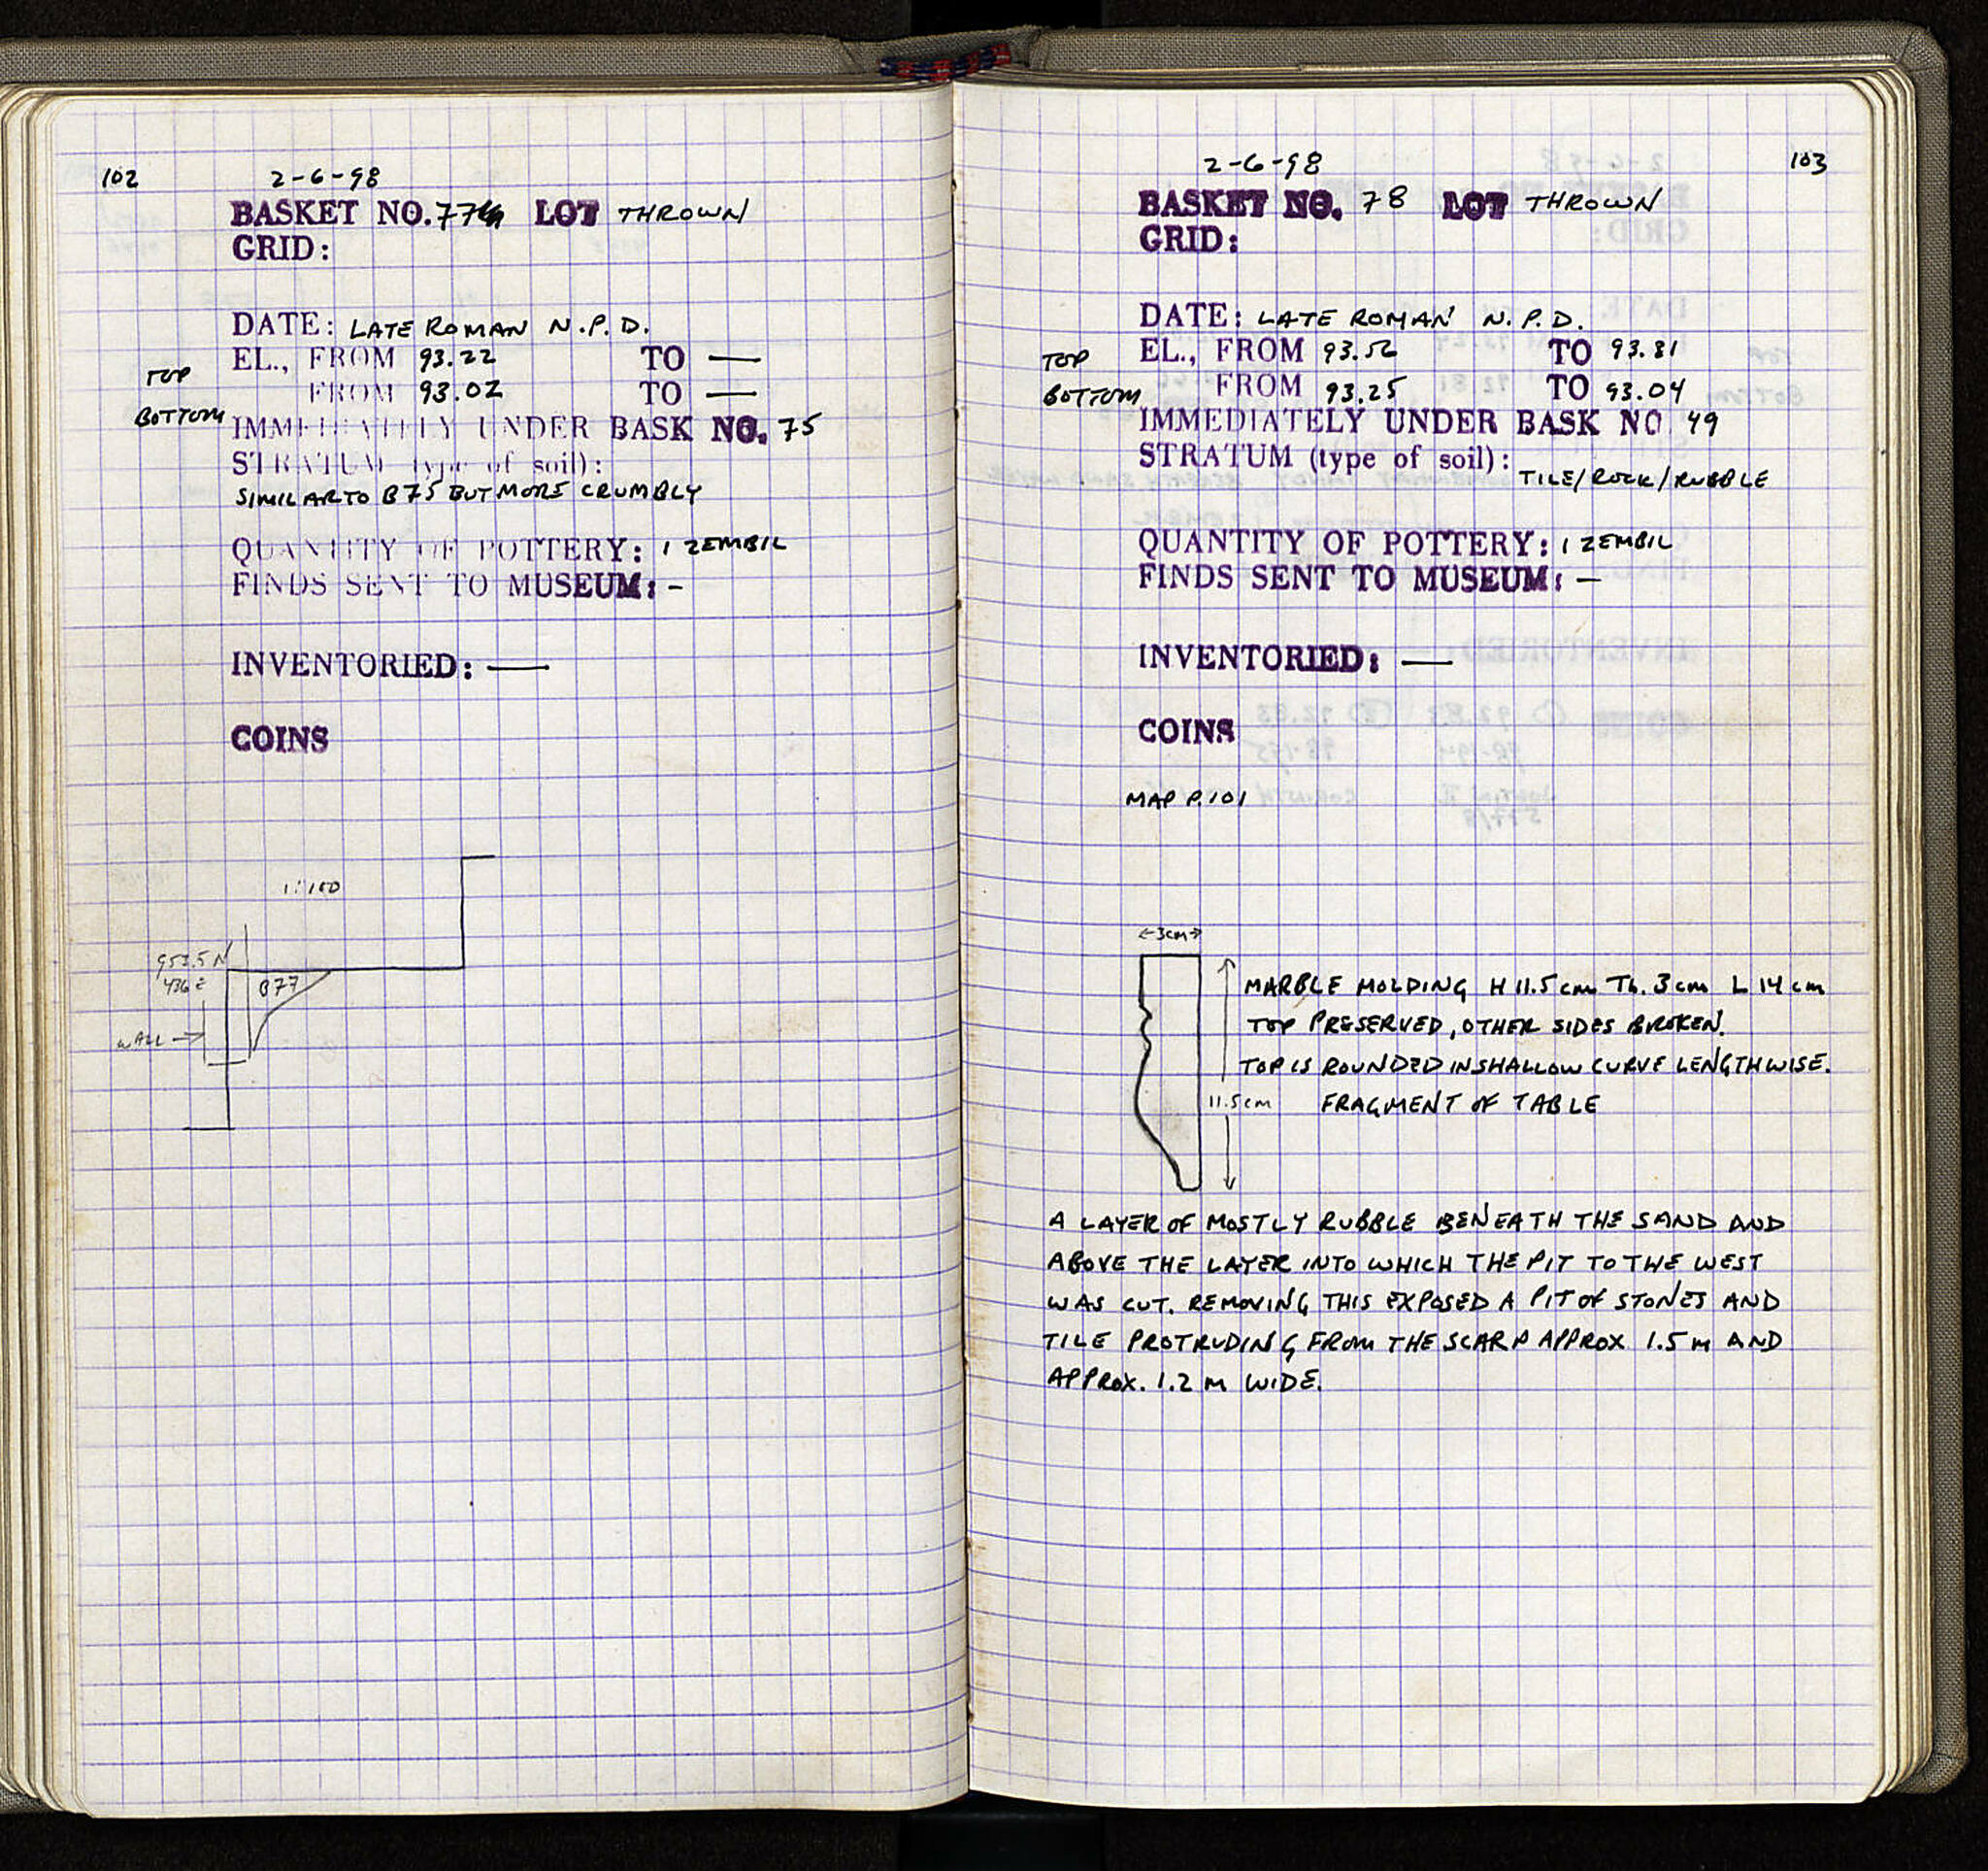 102
2-6-98
BASKET NO. 77 LOT THROWN
GRID:
DATE: LATE ROMAN N.P.D.
TOP EL., FROM 93.22 TO —
BOTTOM FROM 93.02 TO —
IMMEDIATELY UNDER BASK NO. 75
STRATUM (type of soil):
SIMILAR TO B75 BUT MORE CRUMBLY
QUANTITY OF POTTERY: 1 ZEMBIL
FINDS SENT TO MUSEUM: -
INVENTORIED: —
COINS
N
436 E
B77
WALL →
2-6-98
103
BASKET NO. 78 LOT THROWN
GRID:
DATE: LATE ROMAN N.P.D.
TOP EL., FROM 93.56 TO 93.81
BOTTOM FROM 93.25 TO 93.04
IMMEDIATELY UNDER BASK NO. 49
STRATUM (type of soil): TILE/ROCK/RUBBLE
QUANTITY OF POTTERY: 1 ZEMBIL
FINDS SENT TO MUSEUM: —
INVENTORIED: —
COINS
MAP P. 101
←3cm→
MARBLE MOLDING H 11.5 cm Th. 3 cm L 14 cm
TOP PRESERVED, OTHER SIDES BROKEN.
TOP IS ROUNDED IN SHALLOW CURVE LENGTHWISE.
11.5cm FRAGMENT OF TABLE
A LAYER OF MOSTLY RUBBLE BENEATH THE SAND AND
ABOVE THE LAYER INTO WHICH THE PIT TO THE WEST
WAS CUT. REMOVING THIS EXPOSED A PIT OF STONES AND
TILE PROTRUDING FROM THE SCARP APPROX. 1.5 m AND
APPROX. 1.2 m WIDE.